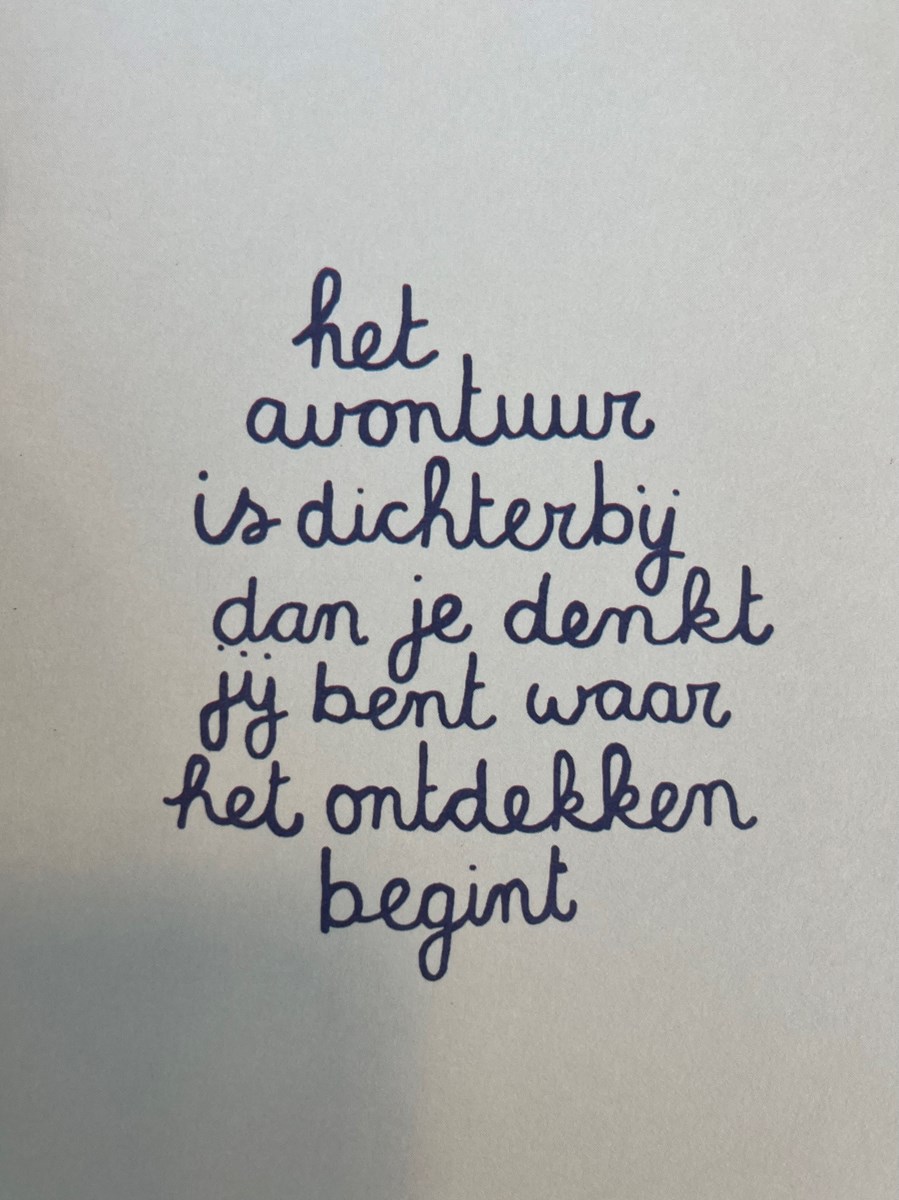 het
avontuur
is dichterbij
dan je denkt
jij bent waar
het ontdekken
begint